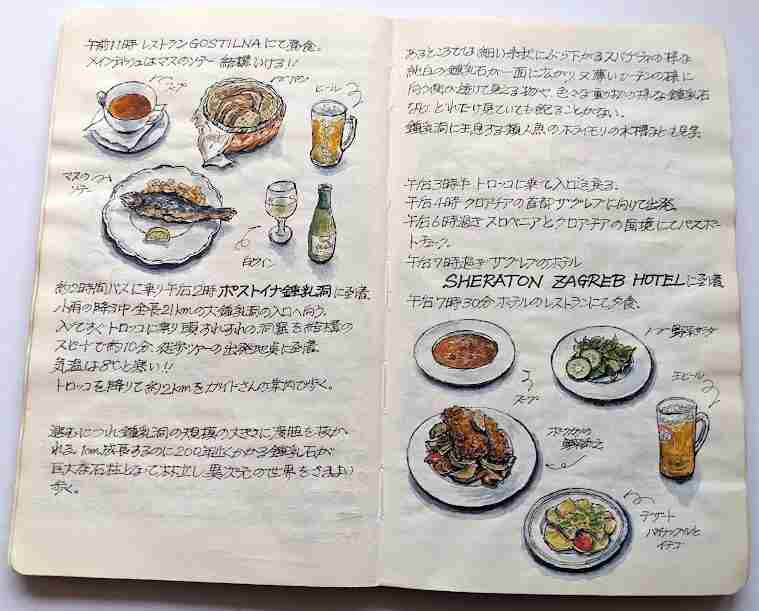 午前11時 レストラン GOSTILNA にて昼食。
メインディッシュはマスのソテー 結構いける!!
スープ
パン
ビール
マスの
ソテー
白ワイン
約2時間バスに乗り午后2時 ポストイナ鍾乳洞に到着
小雨の降る中全長21kmの大鍾乳洞の入口へ向う。
入ってすぐトロッコに乗り頭すれすれの洞窟を結構の
スピードで約10分、徒歩ツアーの出発地点に到着。
気温は8℃と寒い!!
トロッコを降りて約2kmをガイドさんの案内で歩く。
進むにつれ鍾乳洞の規模の大きさに度肝を抜か
れる。1cm成長するのに200年近くかかる鍾乳石が
巨大な石柱となって林立し異次元の世界をさまよい
歩く。
あるところでは細い糸状にぶら下がるスパゲティの様な
純白の鍾乳石が一面に広がり、又薄いカーテンの様に
向う側が透けて見える物や、色々な
鍾乳石
どれだけ見ていても飽きることがない。
鍾乳洞に生息する類人魚のホライモリの水槽なども見学
午后3時半 トロッコに乗って入口に戻る。
午后4時 クロアチアの首都ザグレブに向けて出発。
午后6時過ぎスロベニアとクロアチアの国境にてパスポー
トチェック。
午后7時過ぎ ザグレブのホテル
SHERATON ZAGREB HOTEL に到着
午后7時30分 ホテルのレストランにて夕食。
野菜サラダ
スープ
生ビール
デザート
パイナップルと
イチゴ